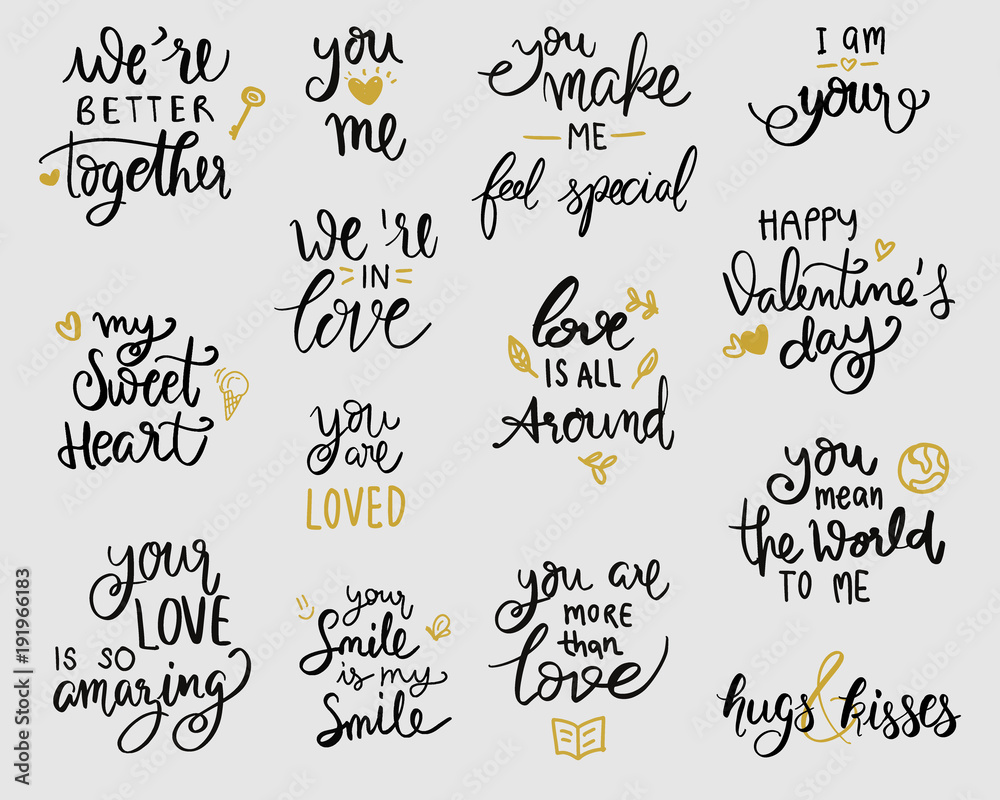 we're
BETTER
together
you
me
you
make
ME
feel special
I am
your
we're
IN
love
HAPPY
Valentine's
day
my
Sweet
Heart
love
IS ALL
Around
you
are
LOVED
you
mean
the World
TO ME
your
LOVE
IS SO
amazing
your
Smile
is my
Smile
you are
MORE
than
love
hugs & kisses
Adobe Stock | #191966183